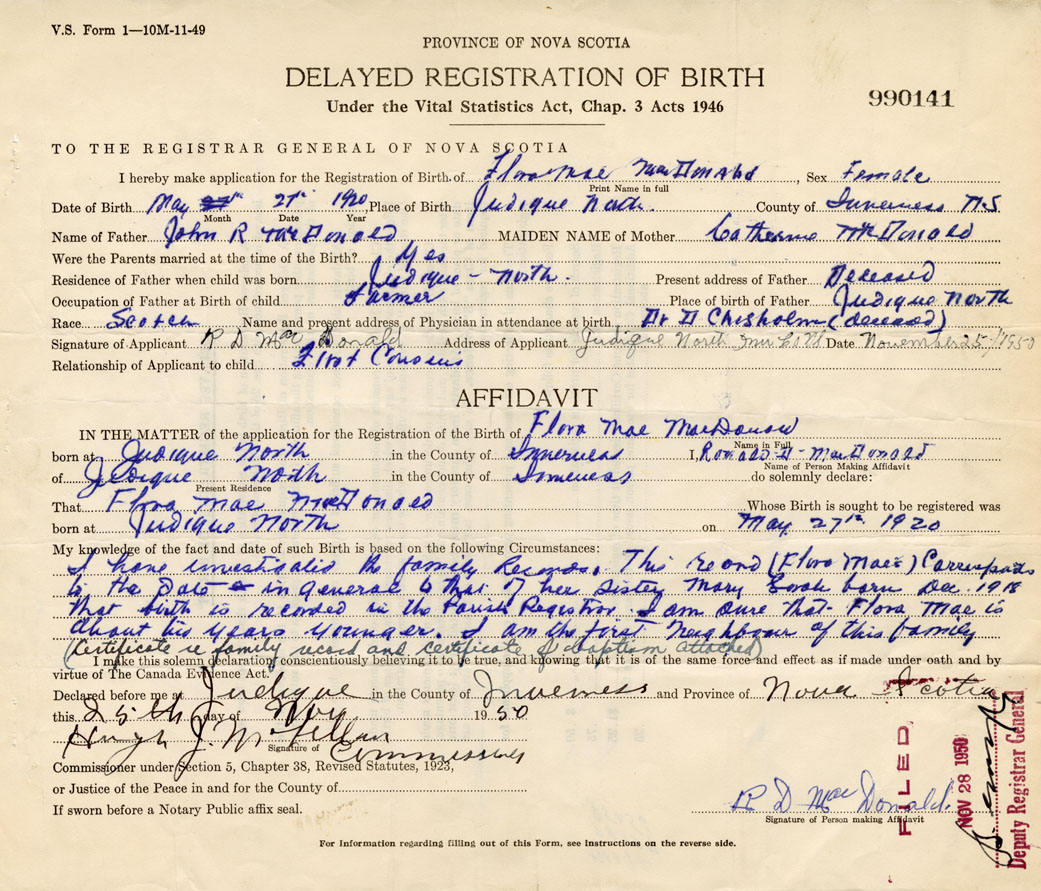 V.S. Form 1—10M-11-49
PROVINCE OF NOVA SCOTIA
DELAYED REGISTRATION OF BIRTH
Under the Vital Statistics Act, Chap. 3 Acts 1946
990141
TO THE REGISTRAR GENERAL OF NOVA SCOTIA
I hereby make application for the Registration of Birth of Flora Mae MacDonald, Sex Female
Print Name in full
Date of Birth May 27th 1920 Place of Birth Judique North. County of Inverness N.S
Month Date Year
Name of Father John R McDonald MAIDEN NAME of Mother Catherine McDonald
Were the Parents married at the time of the Birth? Yes
Residence of Father when child was born Judique - North. Present address of Father Deceased
Occupation of Father at Birth of child Farmer Place of birth of Father Judique North
Race Scotch Name and present address of Physician in attendance at birth Dr D Chisholm (deceased)
Signature of Applicant R D MacDonald Address of Applicant Judique North Inv Co NS Date November 25/1950
Relationship of Applicant to child First Cousins
AFFIDAVIT
IN THE MATTER of the application for the Registration of the Birth of Flora Mae MacDonald
Name in Full
born at Judique North in the County of Inverness I, Ronald D - MacDonald
Name of Person Making Affidavit
of Judique North in the County of Inverness do solemnly declare:
Present Residence
That Flora Mae MacDonald Whose Birth is sought to be registered was
born at Judique North on May 27th 1920
My knowledge of the fact and date of such Birth is based on the following Circumstances:
I have the family Records. This record (Flora Mae) Corresponds
to the Date in general to that of her Sister Mary born Dec. 1918
that birth is recorded in the Parish Registrar. I am sure that Flora Mae is
about two years younger. I am the first Neighbour of this family
(Certificate re family record and certificate of baptism attached)
I make this solemn declaration conscientiously believing it to be true, and knowing that it is of the same force and effect as if made under oath and by
virtue of The Canada Evidence Act.
Declared before me at Judique in the County of Inverness and Province of Nova Scotia
this 25th day of Nov 1950
Hugh J. McLellan
Signature of Commissioner
Commissioner under Section 5, Chapter 38, Revised Statutes, 1923,
or Justice of the Peace in and for the County of
If sworn before a Notary Public affix seal.
R D MacDonald
Signature of Person making Affidavit
FILED
NOV 28 1950
Deputy Registrar General
For Information regarding filling out of this Form, see Instructions on the reverse side.